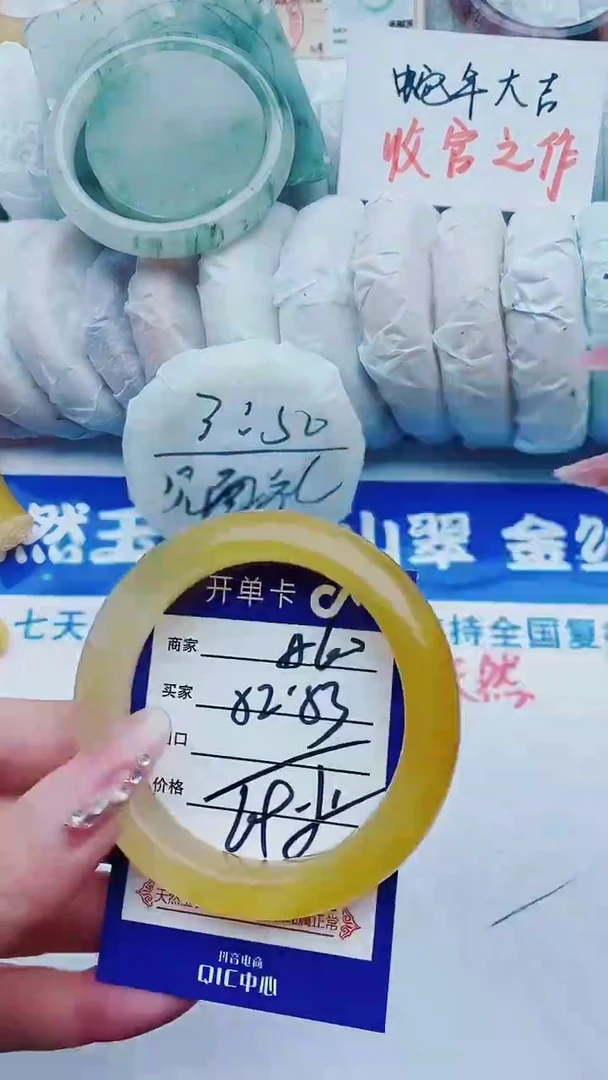 蛇年大吉
收官之作
3:50
见面礼
然玉
山翠 金丝
七天
持全国复
天然
开单卡
商家
买家 82.83
口
价格
天然
属正常
抖音电商
QIC中心